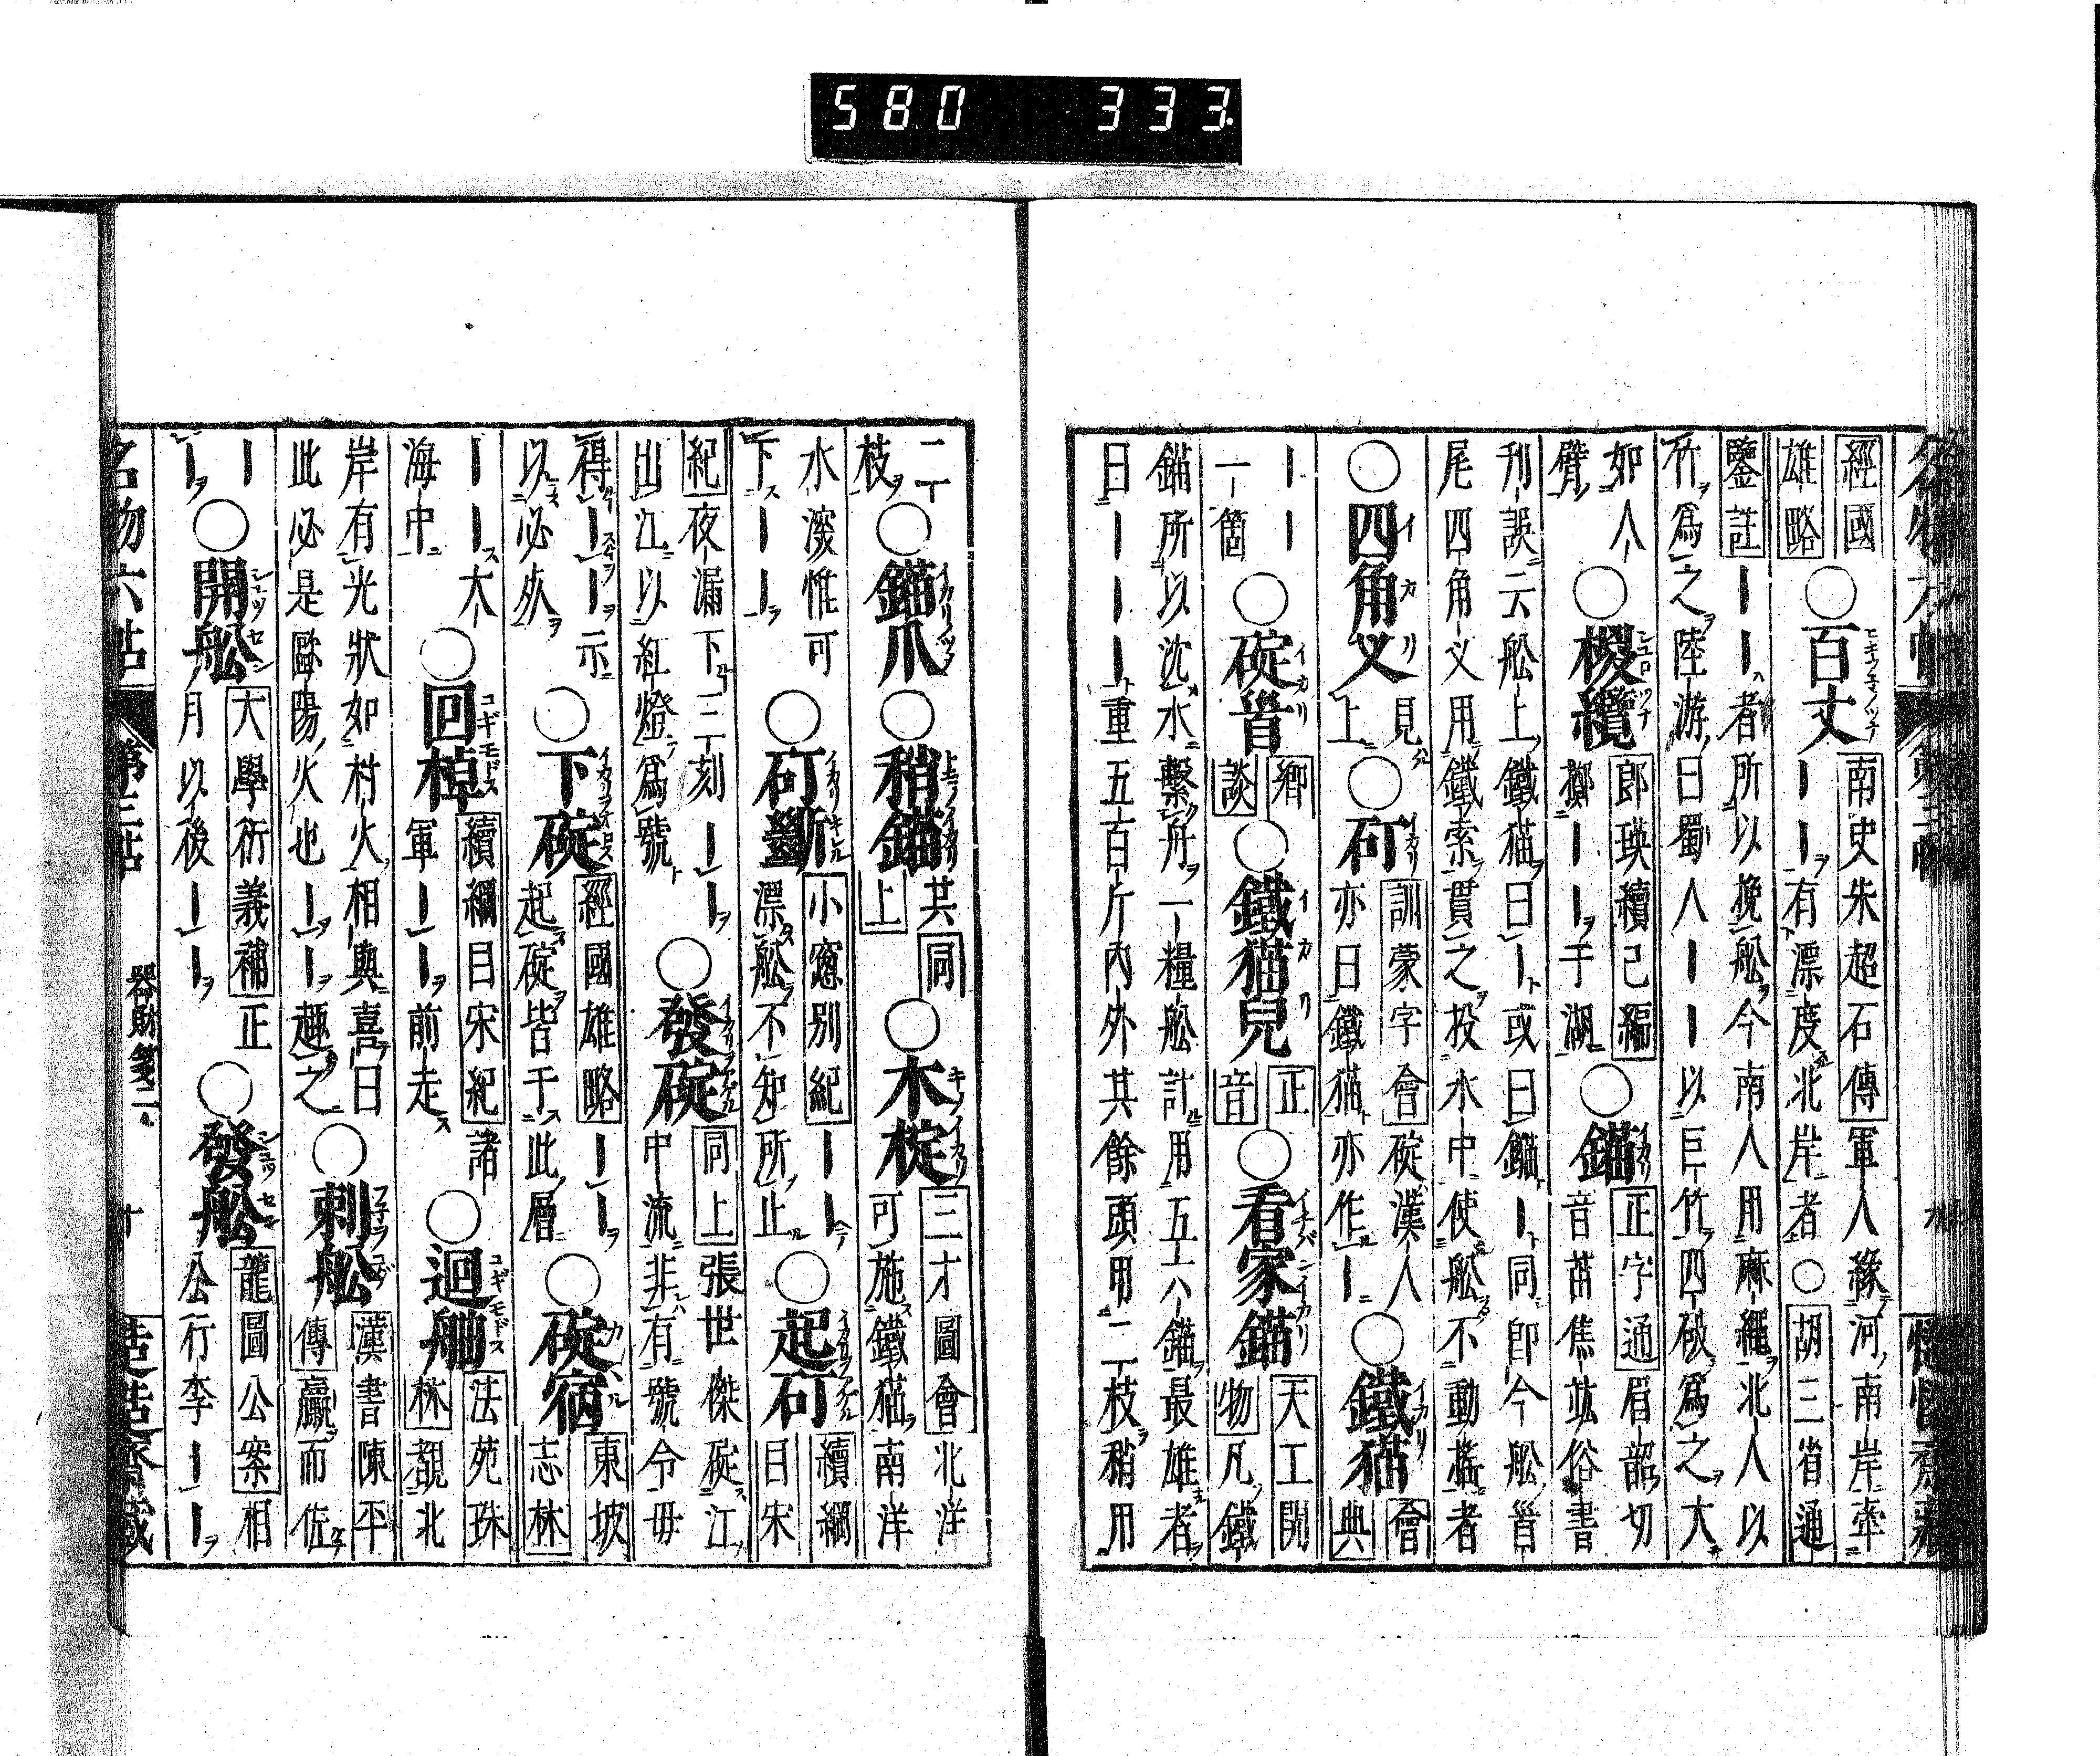 580 333
名物六帖 第三帖
經國雄略○百丈南史朱超石傳軍人緣河南岸牽｜｜有漂度北岸者○胡三省通
鑒註｜｜者所以挽船今南人用麻繩北人以竹為之陸游曰蜀人｜｜以巨竹四破為之大
如人臂○椶纜郎瑛續己編擲｜｜于湖○錨正字通眉韶切音苗焦竑俗書
刊誤云船上鐵猫曰｜或曰錨｜同卽今船首尾四角义用鐵索貫之投水中使船不動搖者
○四角义見上○矴訓蒙字會碇漢人亦曰鐵猫亦作｜○鐵猫會典
｜｜一箇○碇首鄉談○鐵猫兒正音○看家錨天工開物凡鐵
錨所以沈水繫舟一糧船計用五六錨最雄者曰｜｜｜重五百斤內外其餘頭用二枝稍用
二枝○錨爪○稍錨共同上○木椗三才圖會北洋可施鐵猫南洋
水深惟可下｜｜○矴斷小窓別紀｜｜漂船不知所止○起矴續綱目宋
紀夜漏下三刻｜｜出江以紅燈為號○發碇同上張世傑碇江中流非有號令毋
得｜｜示以必死○下碇經國雄略｜｜起碇皆于此層○碇宿東坡志林
｜｜大海中○回棹續綱目宋紀諸軍｜｜前走○迴舳法苑珠林覩北
岸有光狀如村火相與喜曰此必是歐陽火也｜｜趣之○刺船漢書陳平傳羸而佐
｜｜○開船大學衍義補正月以後｜｜○發船龍圖公案相公行李｜｜
名物六帖 第三帖 器財箋二 十